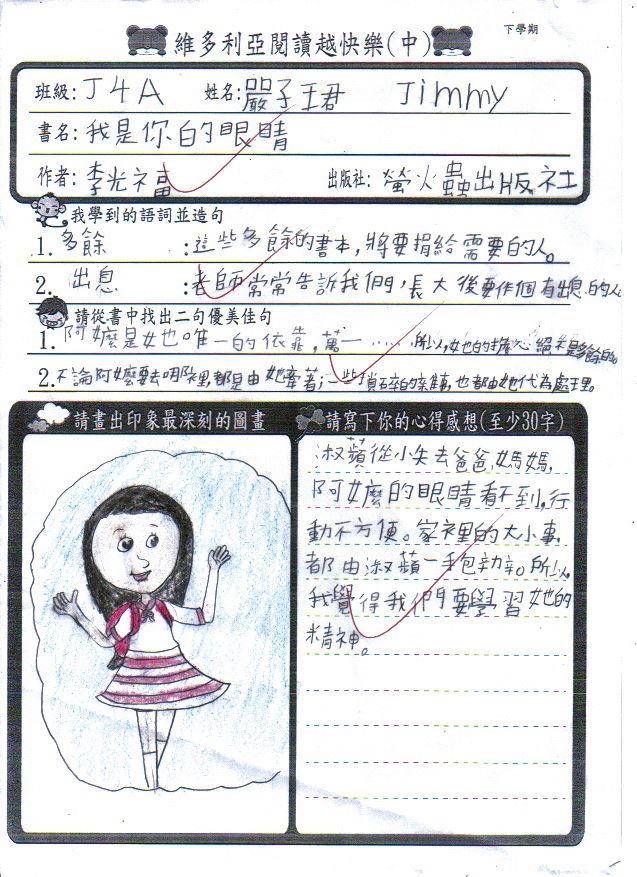 下學期
維多利亞閱讀越快樂(中)
班級: J4A 姓名: 嚴子珺 Jimmy
書名: 我是你的眼睛
作者: 李光福 出版社: 螢火蟲出版社
我學到的語詞並造句
1. 多餘 :這些多餘的書本,將要捐給需要的人。
2. 出息 :老師常常告訴我們,長大後要作個有出息的人
請從書中找出二句優美佳句
1. 阿嬤是她唯一的依靠,萬一……所以,她的擔心絕不是多餘的。
2. 不論阿嬤要去哪裡,都是由她牽著;一些瑣碎的雜事,也都由她代為處理。
請畫出印象最深刻的圖畫
請寫下你的心得感想(至少30字)
淑蘋從小失去爸爸、媽媽,
阿嬤的眼睛看不到,行
動不方便。家裡的大小事,
都由淑蘋一手包辦。所以,
我覺得我們要學習她的
精神。